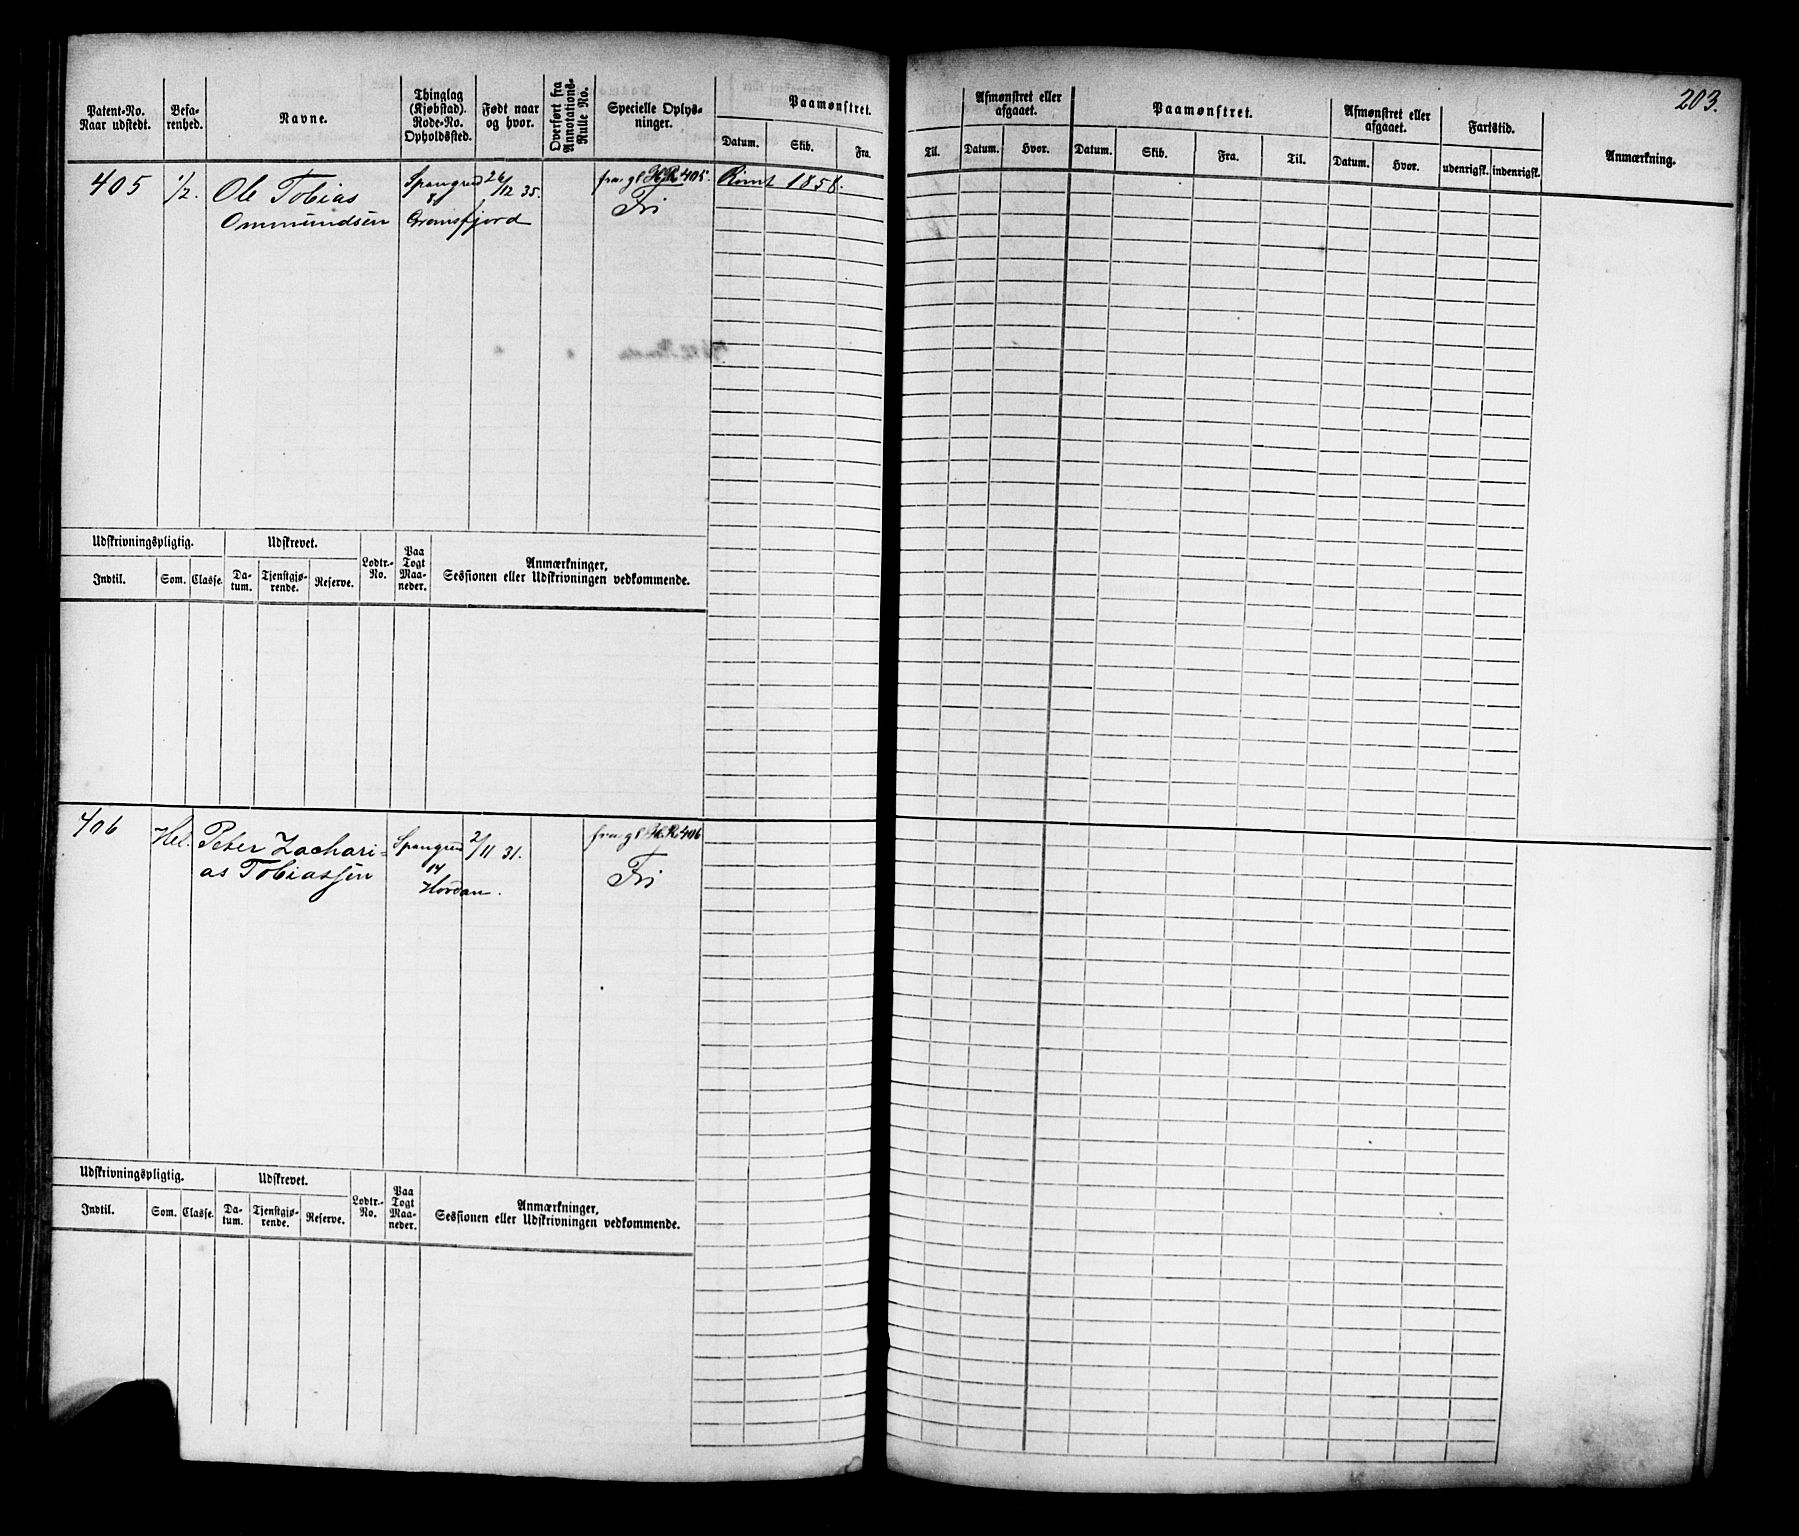 203.
Patent-No. Naar udstedt.
Befa-renhed.
Navne.
Thinglag (Kjøbstad). Rode-No. Opholdssted.
Født naar og hvor.
Overført fra Annotations-Rulle No.
Specielle Oplys-ninger.
Paamønstret.
Datum. Skib. Fra.
Til.
Afmønstret eller afgaaet.
Datum. Hvor.
Paamønstret.
Datum. Skib. Fra. Til.
Afmønstret eller afgaaet.
Datum. Hvor.
Fartstid.
udenrigsk. indenrigsk.
Anmærkning.
405 1/2. Ole Tobias Spangred 26/12 35. fra gl H.R 405. Rømt 1858.
Ommundsen Gronsfjord Fri
Udskrivningspligtig.
Indtil. Som. Classe.
Udskrevet.
Da-tum. Tjenstgjø-rende. Reserve.
Lodtr.-No.
Paa Togt Maa-neder.
Anmærkninger,
Sessionen eller Udskrivningen vedkommende.
406 Hel. Peter Zachari- Spangred 2/11 31. fra gl H.R 406
as Tobiassen 14 Fri
Hordan.
Udskrivningspligtig.
Indtil. Som. Classe.
Udskrevet.
Da-tum. Tjenstgjø-rende. Reserve.
Lodtr.-No.
Paa Togt Maa-neder.
Anmærkninger,
Sessionen eller Udskrivningen vedkommende.